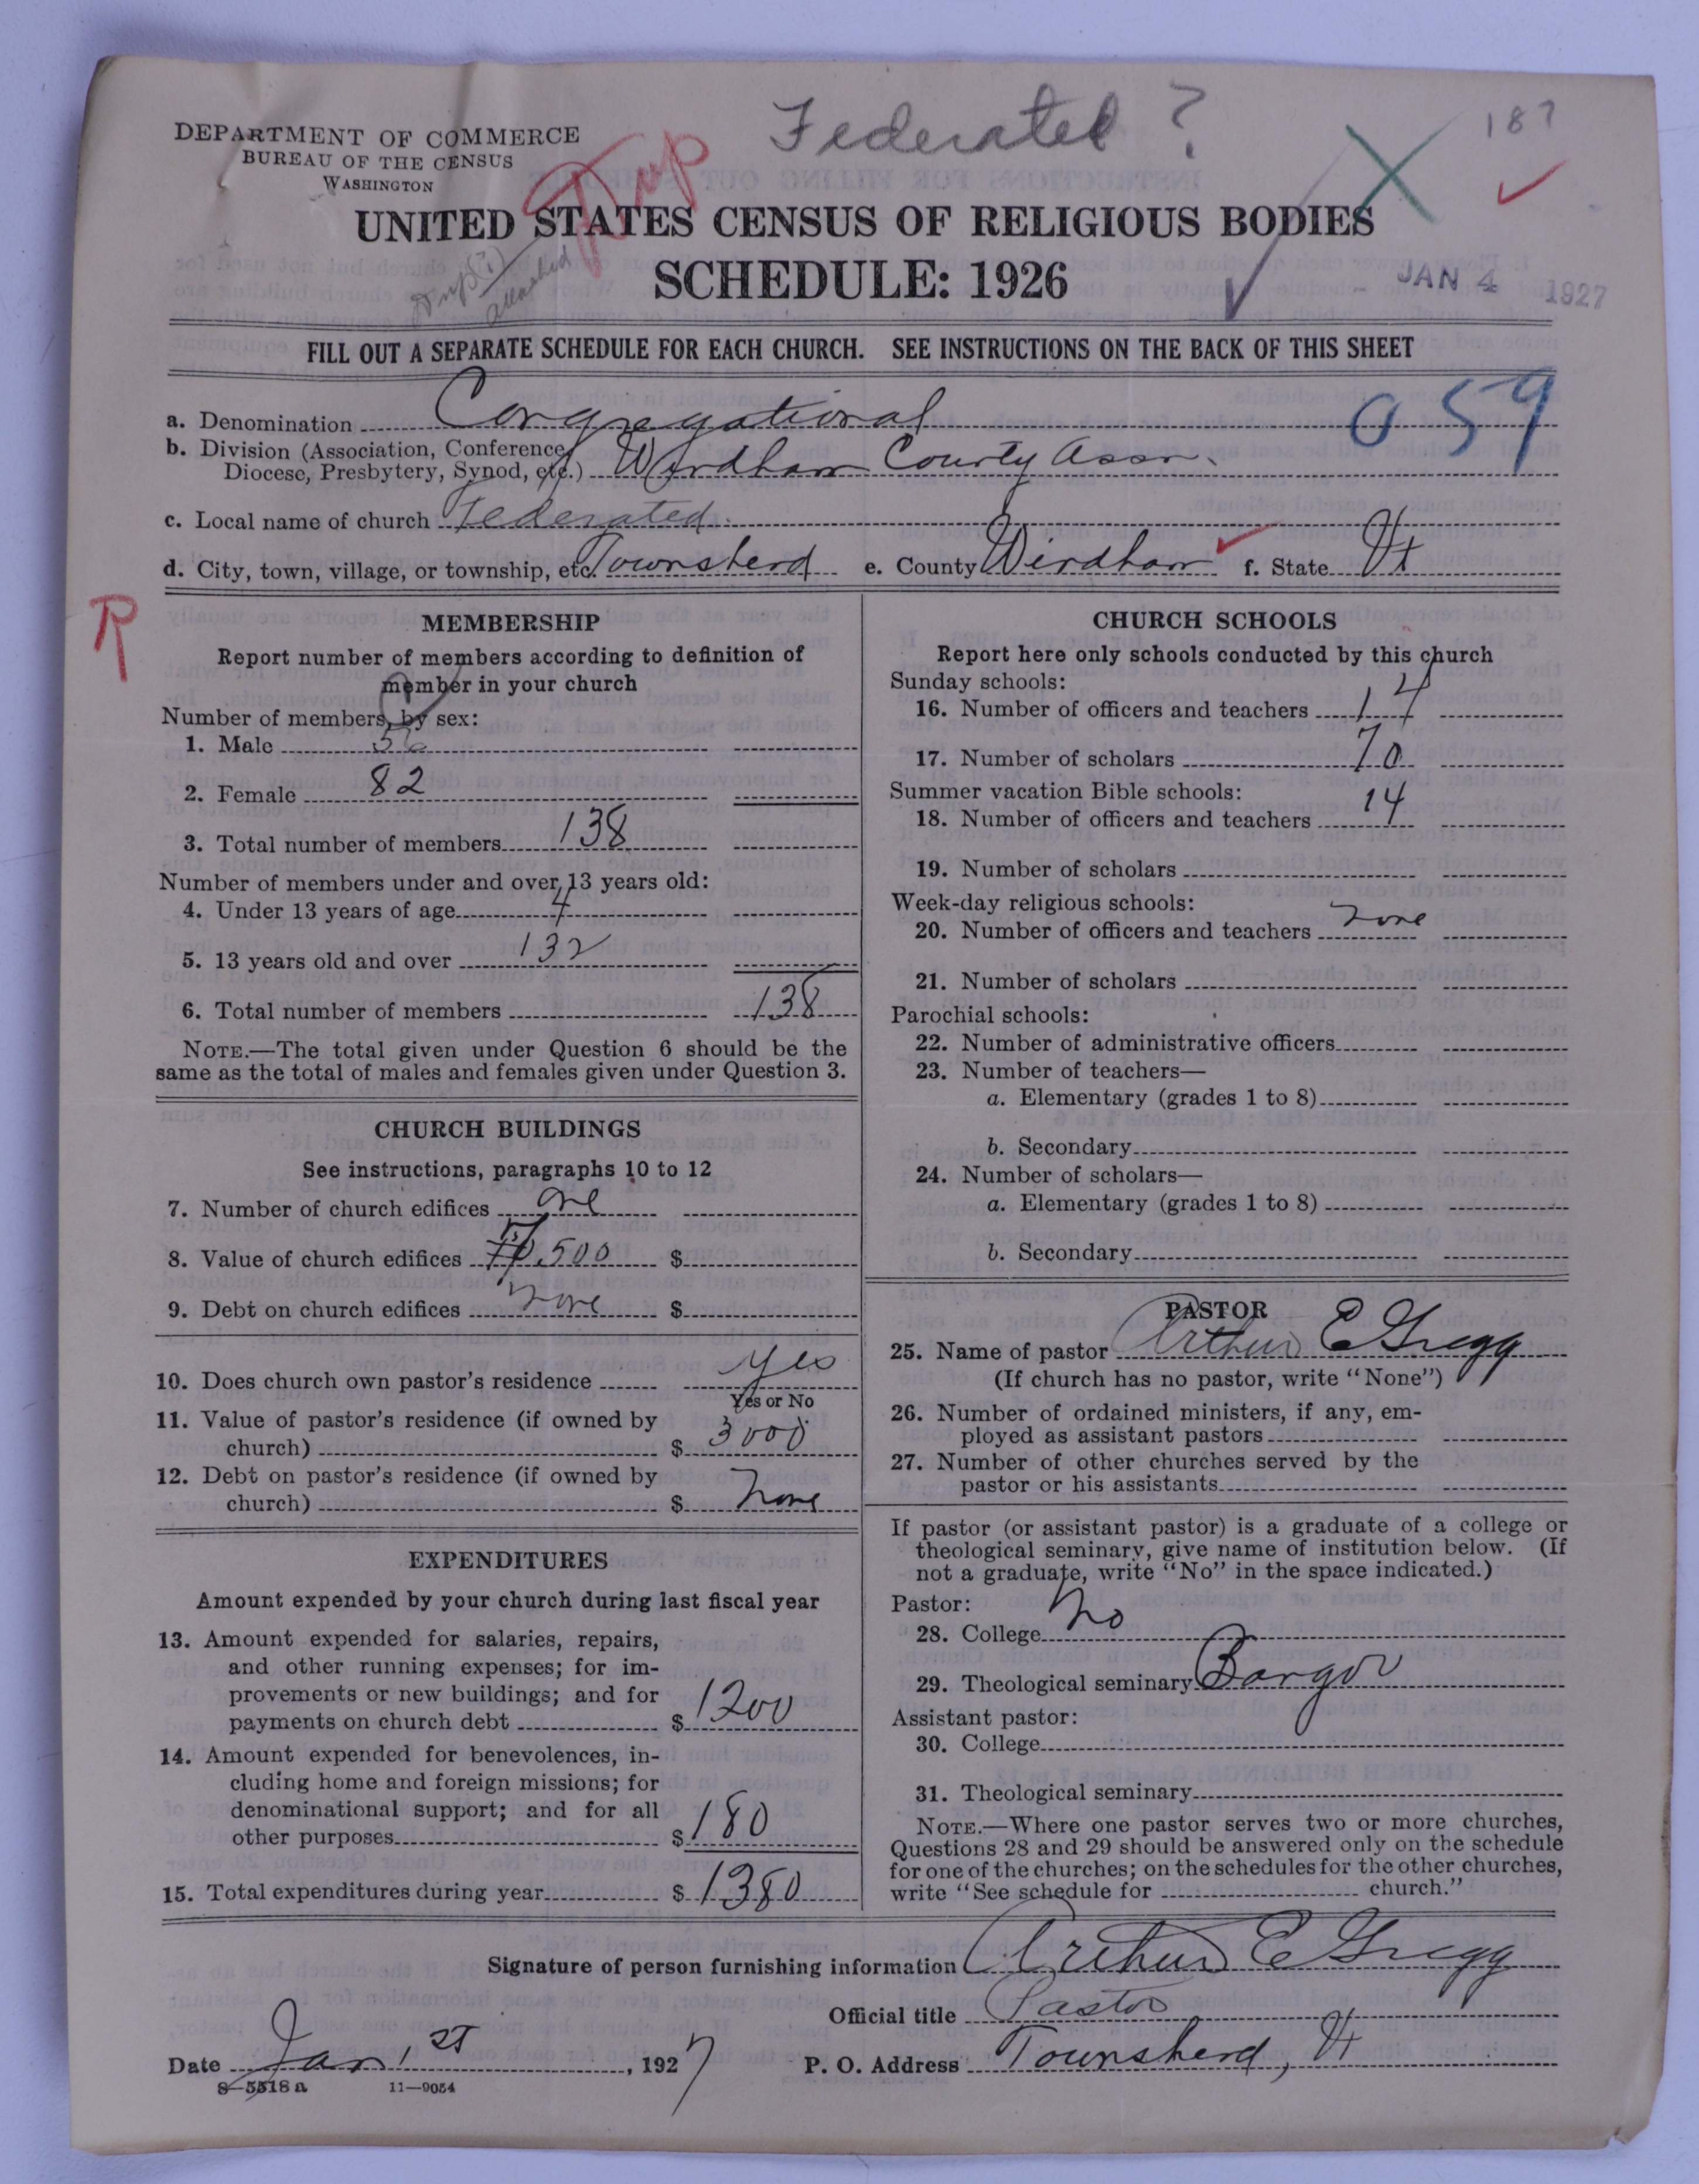 Federated ?
187
DEPARTMENT OF COMMERCE
BUREAU OF THE CENSUS
WASHINGTON
Dup
UNITED STATES CENSUS OF RELIGIOUS BODIES
SCHEDULE: 1926
Dup (?)
attached
JAN 4 1927
FILL OUT A SEPARATE SCHEDULE FOR EACH CHURCH. SEE INSTRUCTIONS ON THE BACK OF THIS SHEET
a. Denomination Congregational 059
b. Division (Association, Conference,
Diocese, Presbytery, Synod, etc.) Windham County Assn.
c. Local name of church Federated
d. City, town, village, or township, etc. Townshend e. County Windham f. State Vt
R
MEMBERSHIP
Report number of members according to definition of
member in your church
Number of members, by sex:
1. Male 56
2. Female 82
3. Total number of members 138
Number of members under and over 13 years old:
4. Under 13 years of age 4
5. 13 years old and over 132
6. Total number of members 138
NOTE.—The total given under Question 6 should be the
same as the total of males and females given under Question 3.
CHURCH BUILDINGS
See instructions, paragraphs 10 to 12
7. Number of church edifices one
8. Value of church edifices ,500 $
9. Debt on church edifices none $
10. Does church own pastor's residence yes
Yes or No
11. Value of pastor's residence (if owned by
church) $ 3000
12. Debt on pastor's residence (if owned by
church) $ none
EXPENDITURES
Amount expended by your church during last fiscal year
13. Amount expended for salaries, repairs,
and other running expenses; for im-
provements or new buildings; and for
payments on church debt $ 1200
14. Amount expended for benevolences, in-
cluding home and foreign missions; for
denominational support; and for all
other purposes $ 180
15. Total expenditures during year $ 1380
CHURCH SCHOOLS
Report here only schools conducted by this church
Sunday schools:
16. Number of officers and teachers 14
17. Number of scholars 70
Summer vacation Bible schools:
18. Number of officers and teachers 14
19. Number of scholars
Week-day religious schools:
20. Number of officers and teachers none
21. Number of scholars
Parochial schools:
22. Number of administrative officers
23. Number of teachers—
a. Elementary (grades 1 to 8)
b. Secondary
24. Number of scholars—
a. Elementary (grades 1 to 8)
b. Secondary
PASTOR
25. Name of pastor Arthur E Gregg
(If church has no pastor, write "None")
26. Number of ordained ministers, if any, em-
ployed as assistant pastors
27. Number of other churches served by the
pastor or his assistants
If pastor (or assistant pastor) is a graduate of a college or
theological seminary, give name of institution below. (If
not a graduate, write "No" in the space indicated.)
Pastor:
28. College No
29. Theological seminary Bangor
Assistant pastor:
30. College
31. Theological seminary
NOTE.—Where one pastor serves two or more churches,
Questions 28 and 29 should be answered only on the schedule
for one of the churches; on the schedules for the other churches,
write "See schedule for church."
Signature of person furnishing information Arthur E Gregg
Official title Pastor
Date Jan 1st, 1927 P. O. Address Townshend, Vt
8—5518 a 11—9054